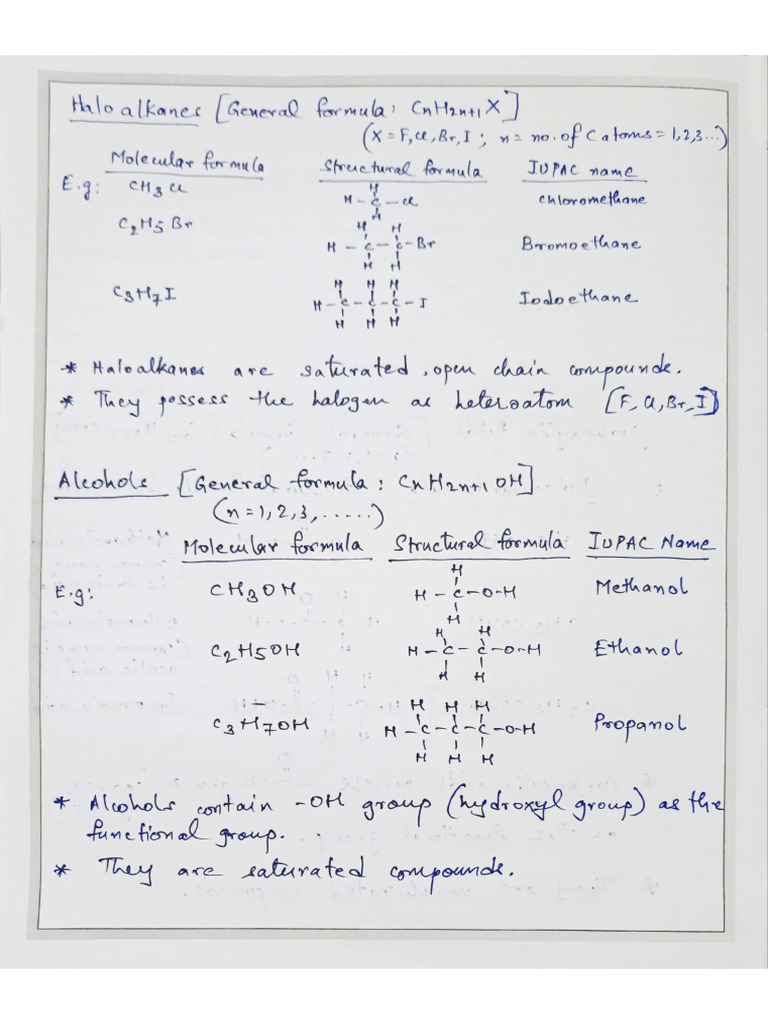 Haloalkanes [General formula: CnH2n+1 X]
(X = F, Cl, Br, I ; n = no. of C atoms = 1, 2, 3...)
Molecular formula Structural formula IUPAC name
E.g: CH3Cl H - C - Cl H H Chloromethane
C2H5Br H - C - C - Br H H H H Bromoethane
C3H7I H - C - C - C - I H H H H H H Iodoethane
* Haloalkanes are saturated, open chain compounds.
* They possess the halogen as heteroatom [F, Cl, Br, I]
Alcohols [General formula : CnH2n+1 OH]
(n = 1, 2, 3, ......)
Molecular formula Structural formula IUPAC Name
E.g: CH3OH H - C - O - H H H Methanol
C2H5OH H - C - C - O - H H H H H Ethanol
C3H7OH H - C - C - C - O - H H H H H H H Propanol
* Alcohols contain -OH group (hydroxyl group) as the
functional group.
* They are saturated compounds.